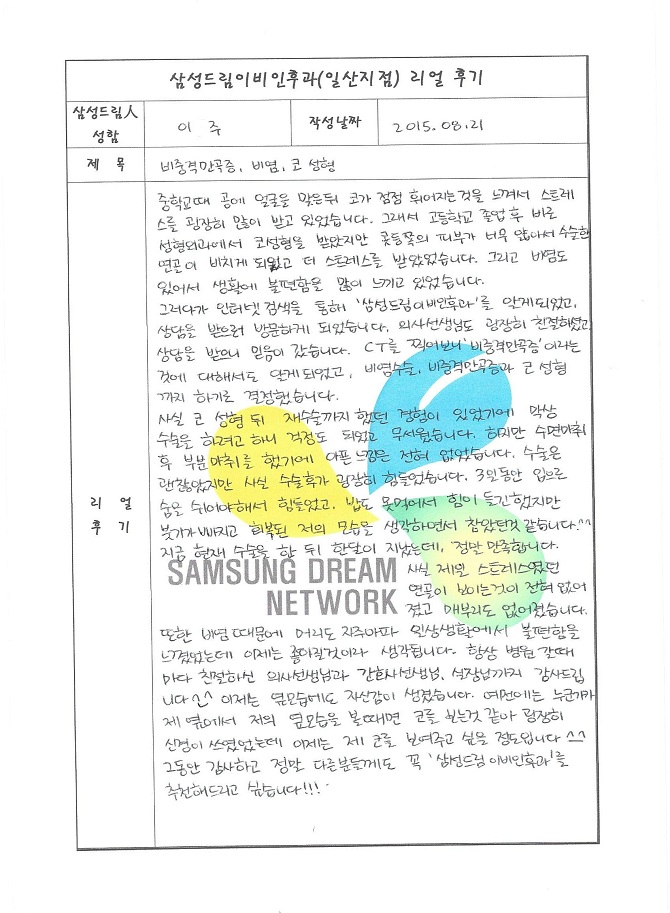 삼성드림이비인후과(일산지점) 리얼 후기
삼성드림人
성함
이 주
작성날짜
2015.08.21
제 목
비중격만곡증, 비염, 코 성형
리 얼
후 기
중학교때 공에 얼굴을 맞은뒤 코가 점점 휘어지는것을 느껴서 스트레
스를 굉장히 많이 받고 있었습니다. 그래서 고등학교 졸업 후 바로
성형외과에서 코성형을 받았지만 콧등쪽의 피부가 너무 얇아서 수술한
연골이 비치게 되었고 더 스트레스를 받았었습니다. 그리고 비염도
있어서 생활에 불편함을 많이 느끼고 있었습니다.
그러다가 인터넷 검색을 통해 '삼성드림이비인후과'를 알게되었고,
상담을 받으러 방문하게 되었습니다. 의사선생님도 굉장히 친절하셨고
상담을 받으니 믿음이 갔습니다. CT를 찍어보니 '비중격만곡증'이라는
것에 대해서도 알게 되었고, 비염수술, 비중격만곡증과 코 성형
까지 하기로 결정했습니다.
사실 코 성형 뒤 재수술까지 했던 경험이 있었기에 막상
수술을 하려고 하니 걱정도 되었고 무서웠습니다. 하지만 수면마취
후 부분마취를 했기에 아픈 느낌은 전혀 없었습니다. 수술은
괜찮았지만 사실 수술후가 굉장히 힘들었습니다. 3일동안 입으로
숨을 쉬어야해서 힘들었고, 밥도 못먹어서 힘이 들긴했지만
붓기가 빠지고 회복된 저의 모습을 생각하면서 참았던것 같습니다.^^
지금 현재 수술을 한 뒤 한달이 지났는데, 정말 만족합니다.
사실 제일 스트레스였던
연골이 보이는것이 전혀 없어
졌고 매부리도 없어졌습니다.
SAMSUNG DREAM
NETWORK
또한 비염때문에 머리도 자주아파 일상생활에서 불편함을
느꼈었는데 이제는 좋아질것이라 생각됩니다. 항상 병원 갈때
마다 친절하신 의사선생님과 간호사선생님, 실장님까지 감사드립
니다^^ 이제는 옆모습에도 자신감이 생겼습니다. 예전에는 누군가가
제 옆에서 저의 옆모습을 볼때면 코를 보는것 같아 굉장히
신경이 쓰였었는데 이제는 제 코를 보여주고 싶을 정도입니다 ^^
그동안 감사하고 정말 다른분들께도 꼭 '삼성드림 이비인후과'를
추천해드리고 싶습니다!!!